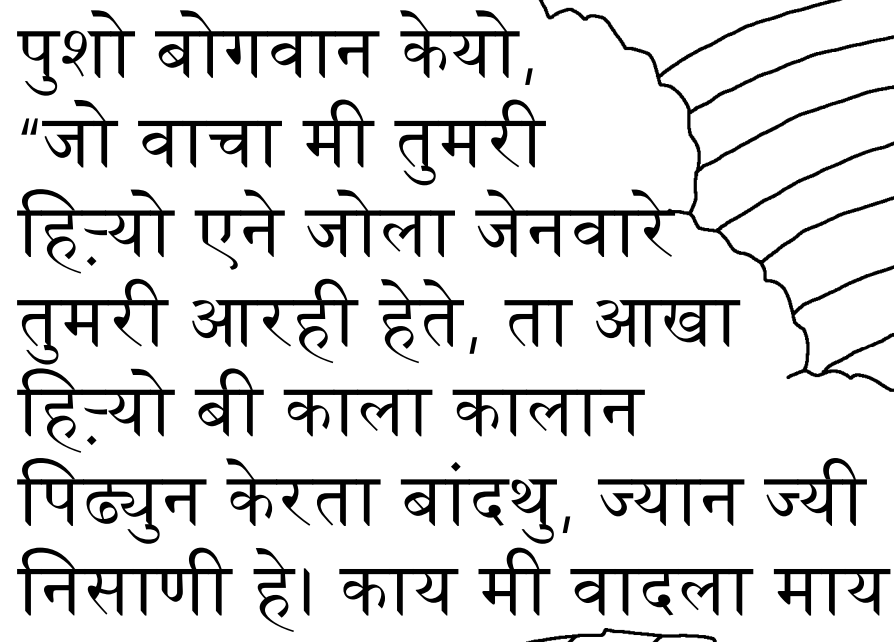 पुशो बोगवान केयो,
“जो वाचा मी तुमरी
हिऱ्यो एने जोला जेनवारे
तुमरी आरही हेते, ता आखा
हिऱ्यो बी काला कालान
पिढ्युन केरता बांदथु, ज्यान ज्यी
निसाणी हे। काय मी वादला माय